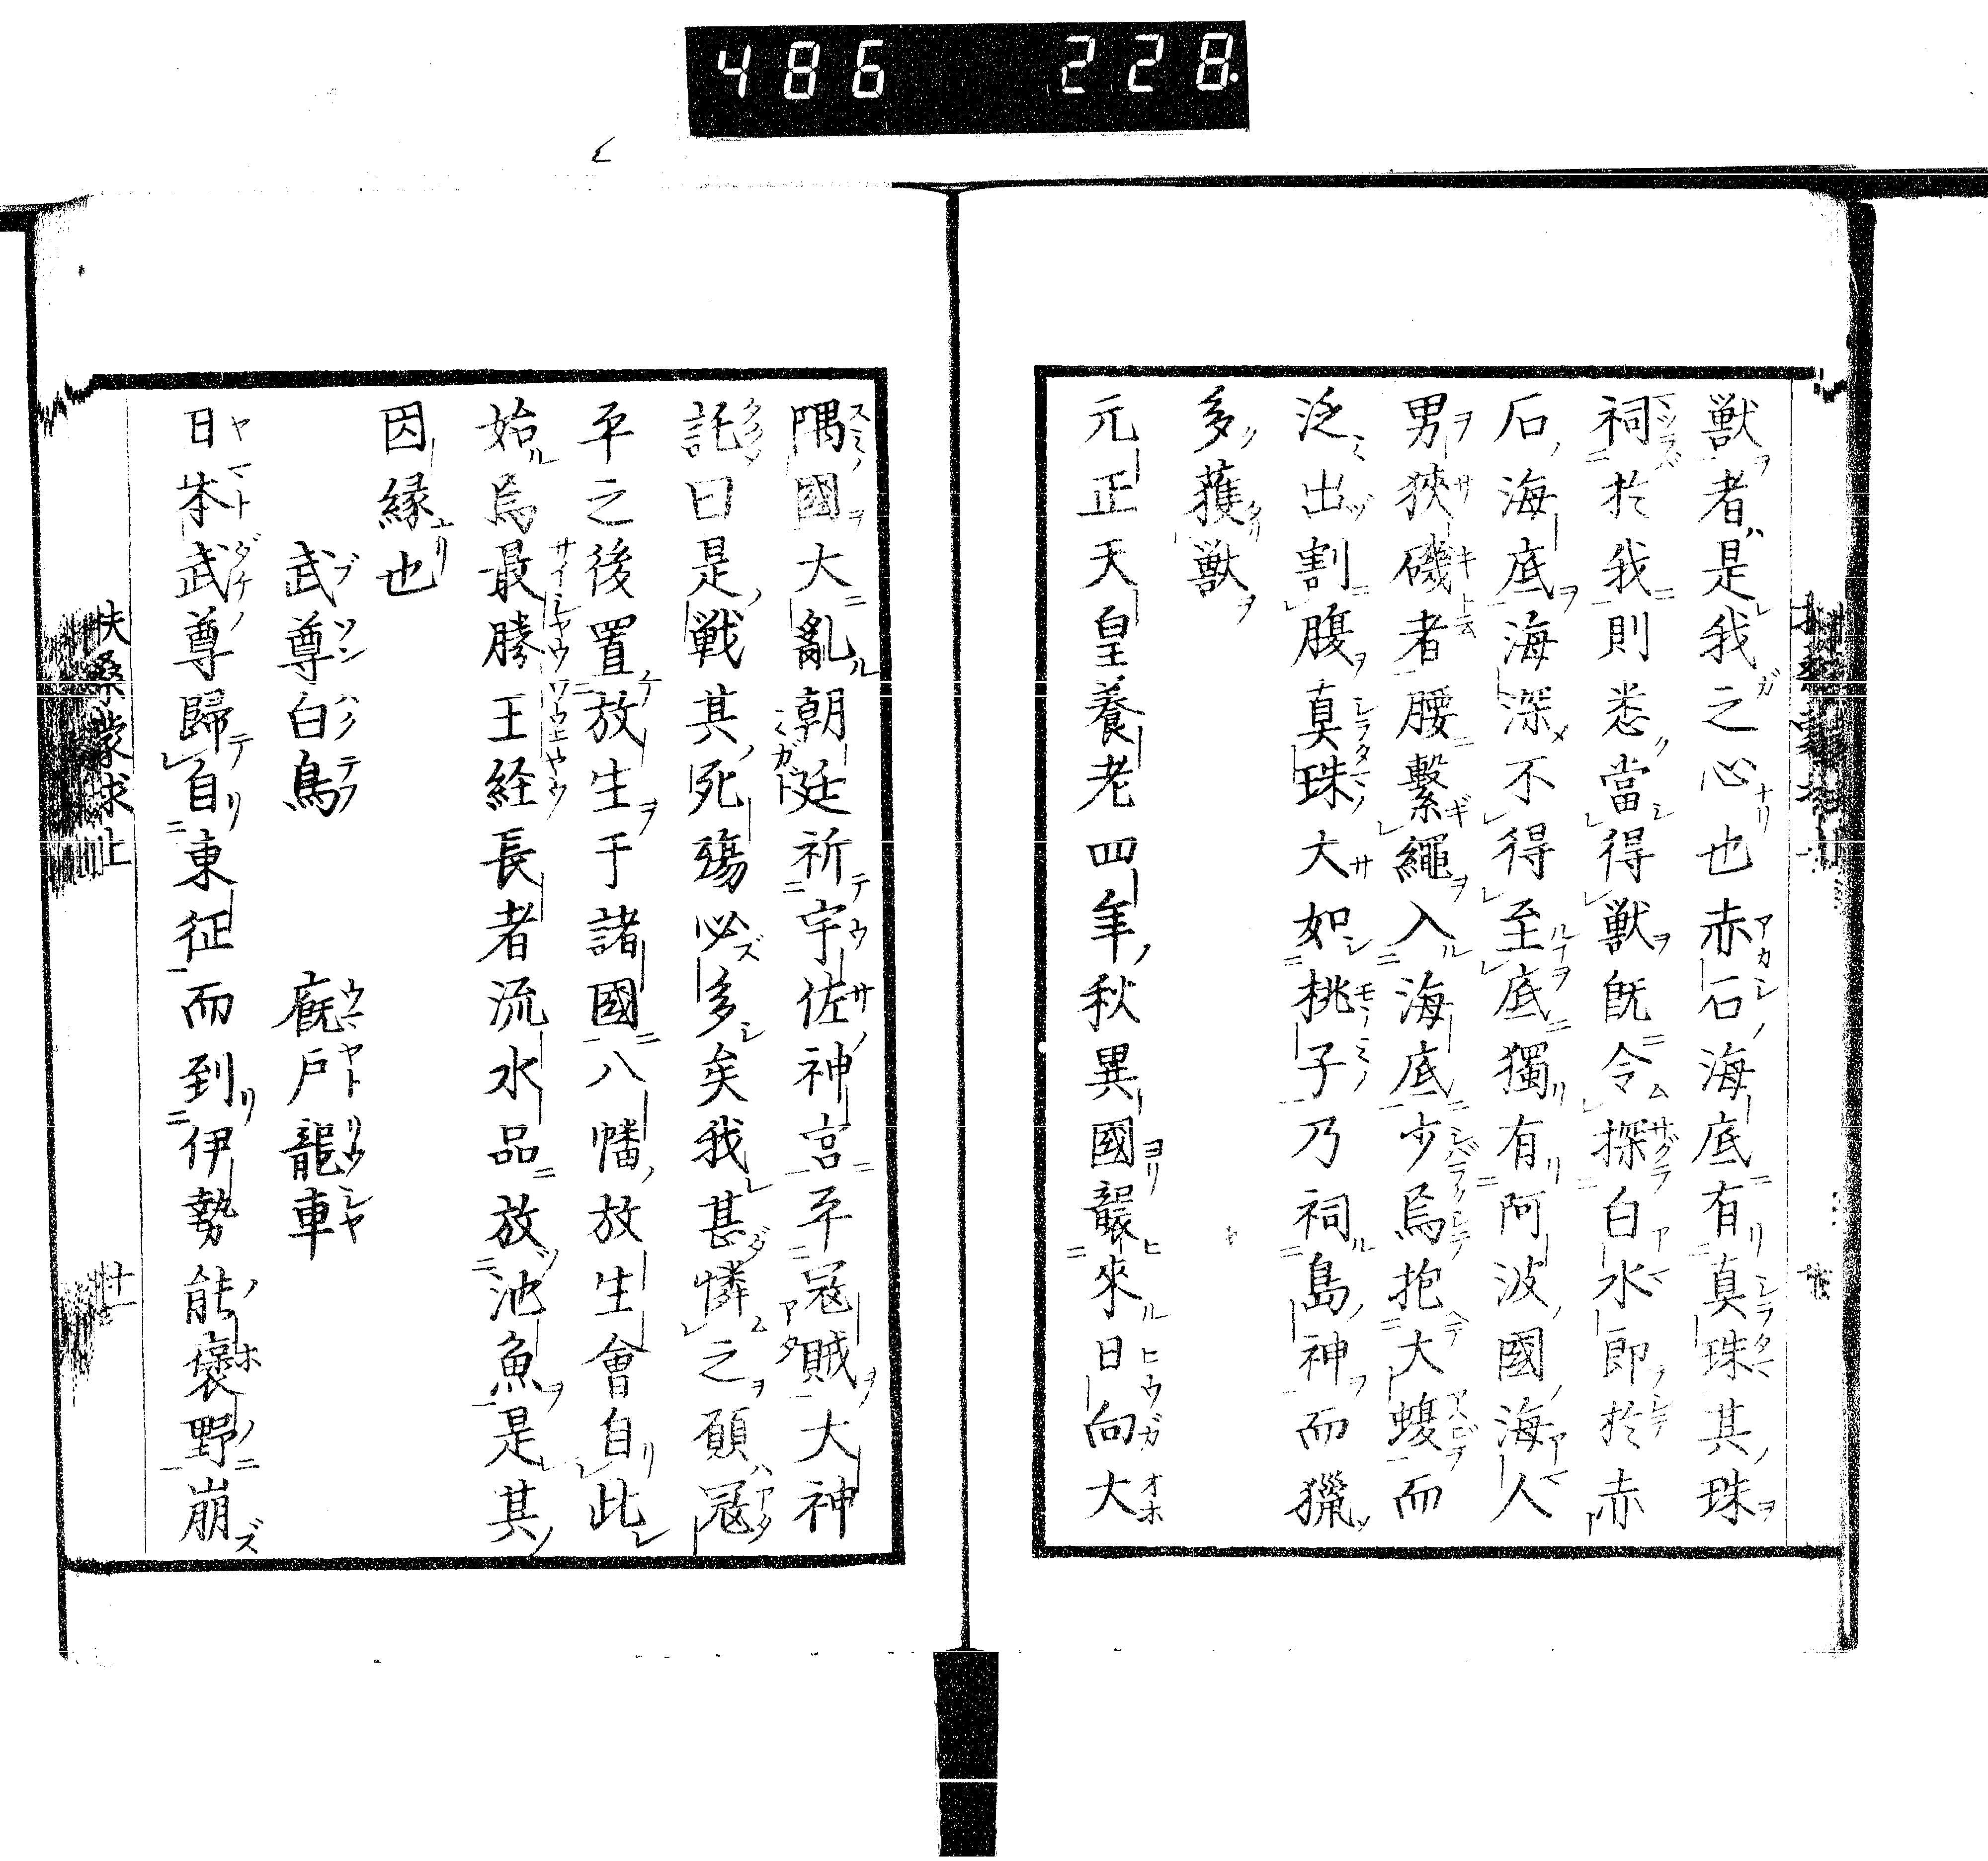 486 228.
獣者是我之心也赤石海底有真珠其珠
祠於我則悉當得獣既令探白水郎於赤
石海底海深不得至底獨有阿波國海人
男狹磯者腰繫繩入海底少焉抱大蝮而
泛出割腹真珠大如桃子乃祠島神而獵
多獲獣
元正天皇養老四年秋異國襲來日向大
隅國大亂朝廷祈宇佐神宮平冦賊大神
託曰是戦其死殤必多矣我甚憐之願冦
平之後置放生于諸國八幡放生會自此
始焉最勝王経長者流水品放池魚是其
因縁也
武尊白鳥 廐戸龍車
日本武尊歸自東征而到伊勢能褒野崩
扶桑蒙求上
十一